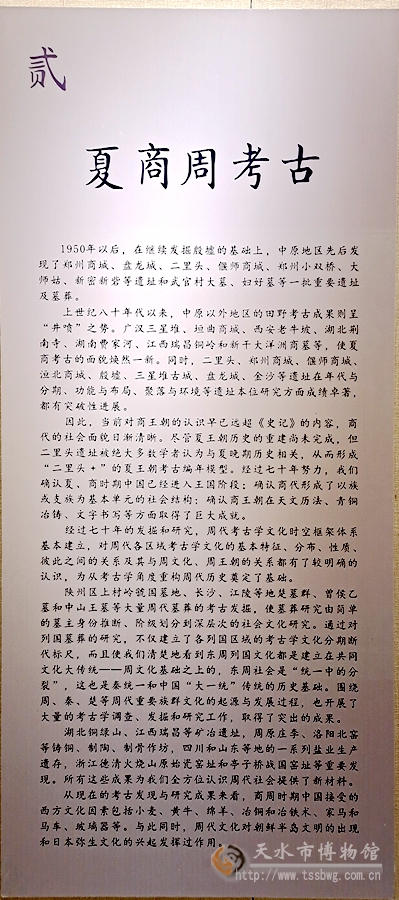 贰
夏商周考古
1950年以后，在继续发掘殷墟的基础上，中原地区先后发
现了郑州商城、盘龙城、二里头、偃师商城、郑州小双桥、大
师姑、新密新砦等遗址和武官村大墓、妇好墓等一批重要遗址
及墓葬。
上世纪八十年代以来，中原以外地区的田野考古成果则呈
“井喷”之势。广汉三星堆、垣曲商城、西安老牛坡、湖北荆
南寺、湖南费家河、江西瑞昌铜岭和新干大洋洲商墓等，使夏
商考古的面貌焕然一新。同时，二里头、郑州商城、偃师商城、
洹北商城、殷墟、三星堆古城、盘龙城、金沙等遗址在年代与
分期、功能与布局、聚落与环境等遗址本位研究方面成绩卓著，
都有突破性进展。
因此，当前对商王朝的认识早已远超《史记》的内容，商
代的社会面貌日渐清晰。尽管夏王朝历史的重建尚未完成，但
二里头遗址被绝大多数学者认为与夏晚期历史相关，从而形成
“二里头＋”的夏王朝考古编年模型。经过七十年努力，我们
确认夏、商时期中国已经进入王国阶段；确认商代形成了以族
或支族为基本单元的社会结构；确认商王朝在天文历法、青铜
冶铸、文字书写等方面取得了巨大成就。
经过七十年的发掘和研究，周代考古学文化时空框架体系
基本建立，对周代各区域考古学文化的基本特征、分布、性质、
彼此之间的关系及其与周文化、周王朝的关系都有了较明确的
认识，为从考古学角度重构周代历史奠定了基础。
陕州区上村岭虢国墓地、长沙、江陵等地楚墓群、曾侯乙
墓和中山王墓等大量周代墓葬的考古发掘，使墓葬研究由简单
的墓主身份推断、阶级划分到深层次的社会文化研究。通过对
列国墓葬的研究，不仅建立了各列国区域的考古学文化分期断
代标尺，而且使我们清楚地看到东周列国文化都是建立在共同
文化大传统——周文化基础之上的，东周社会是“统一中的分
裂”，这也是秦统一和中国“大一统”传统的历史基础。围绕
周、秦、楚等周代重要族群文化的起源与发展过程，也开展了
大量的考古学调查、发掘和研究工作，取得了突出的成果。
湖北铜绿山、江西瑞昌等矿冶遗址，周原庄李、洛阳北窑
等铸铜、制陶、制骨作坊，四川和山东等地的一系列盐业生产
遗存，浙江德清火烧山原始瓷窑址和亭子桥战国窑址等重要发
现。所有这些成果为我们全方位认识周代社会提供了新材料。
从现在的考古发现与研究成果来看，商周时期中国接受的
西方文化因素包括小麦、黄牛、绵羊、冶铜和冶铁术、家马和
马车、玻璃器等。与此同时，周代文化对朝鲜半岛文明的出现
和日本弥生文化的兴起发挥过作用。
天水市博物馆
http://www.tssbwg.com.cn